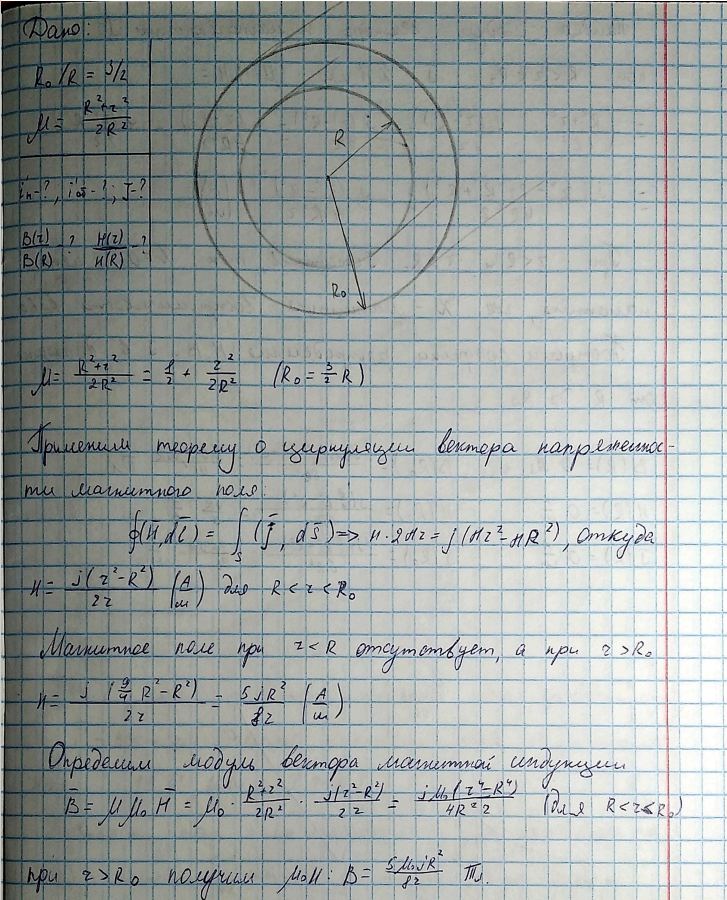 Дано:
R₀/R = 3/2
μ = (R²+r²)/(2R²)
iₙ-?, iоб-?; J-?
B(r)/B(R) -? H(r)/H(R) -?
R
R₀
μ = (R²+r²)/(2R²) = 1/2 + r²/(2R²) (R₀ = 3/2 R)
Применим теорему о циркуляции вектора напряженнос-
ти магнитного поля:
∮(H, dl̄) = ∫ₛ (j̄, ds̄) => H·2πr = j(πr²-πR²), откуда
H = j(r²-R²)/(2r) (А/м) для R<r<R₀
Магнитное поле при r<R отсутствует, а при r>R₀
H = j(9/4 R²-R²)/(2r) = 5jR²/(8r) (А/м)
Определим модуль вектора магнитной индукции
B̄ = μμ₀H̄ = μ₀·(R²+r²)/(2R²)·j(r²-R²)/(2r) = jμ₀(r⁴-R⁴)/(4R²r) (для R<r<R₀)
при r>R₀ получим μ₀H: B = 5μ₀jR²/(8r) Тл.